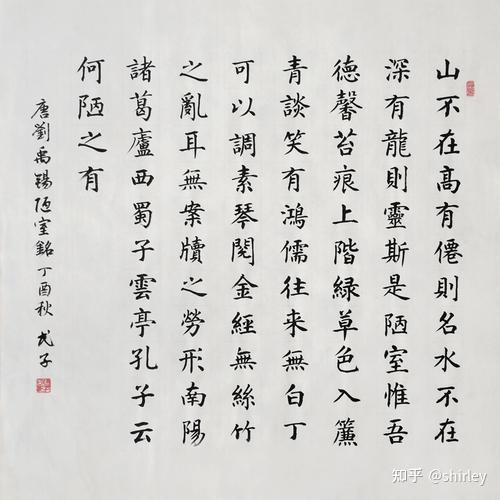 山不在高有僊則名水不在
深有龍則靈斯是陋室惟吾
德馨苔痕上階緑草色入簾
青談笑有鴻儒往来無白丁
可以調素琴閲金經無絲竹
之亂耳無案牘之勞形南陽
諸葛廬西蜀子雲亭孔子云
何陋之有
唐劉禹錫陋室銘丁酉秋
知乎 @shirley